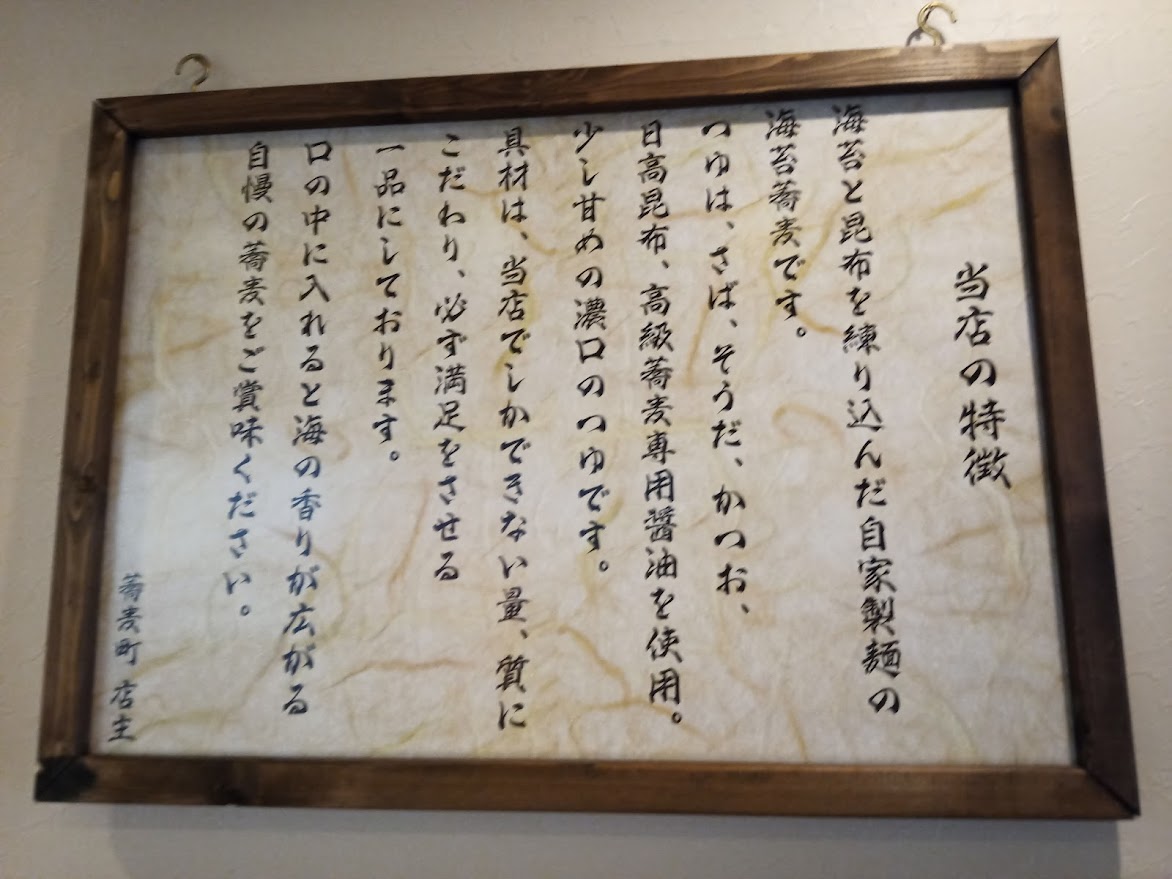 当店の特徴
海苔と昆布を練り込んだ自家製麺の
海苔蕎麦です。
つゆは、さば、そうだ、かつお、
日高昆布、高級蕎麦専用醤油を使用。
少し甘めの濃口のつゆです。
具材は、当店でしかできない量、質に
こだわり、必ず満足をさせる
一品にしております。
口の中に入れると海の香りが広がる
自慢の蕎麦をご賞味ください。
蕎麦町 店主